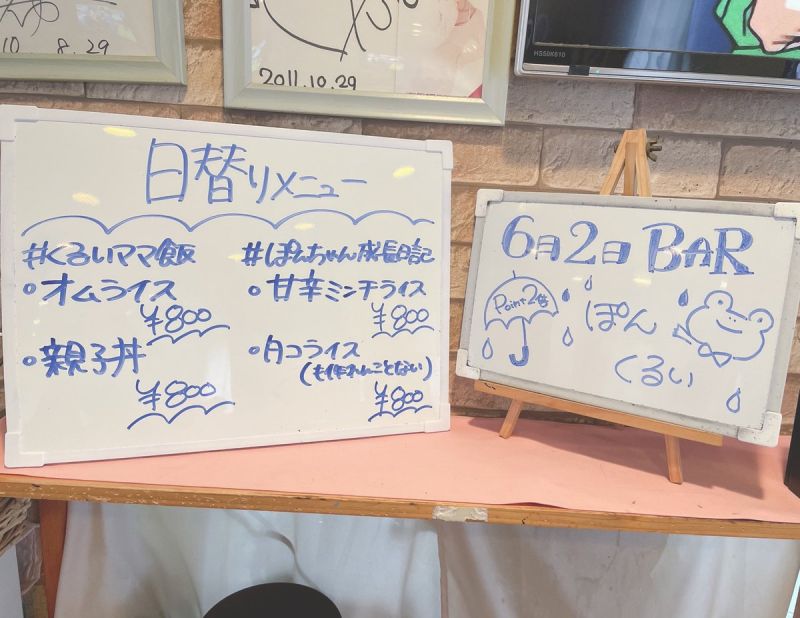 10. 8.29
2011.10.29
HS50K610
日替りメニュー
#くるいママ飯
・オムライス
¥800
・親子丼
¥800
#ぽんちゃん成長日記
・甘辛ミンチライス
¥800
・タコライス
¥800
6月2日 BAR
Point 2倍
ぽん
くるい